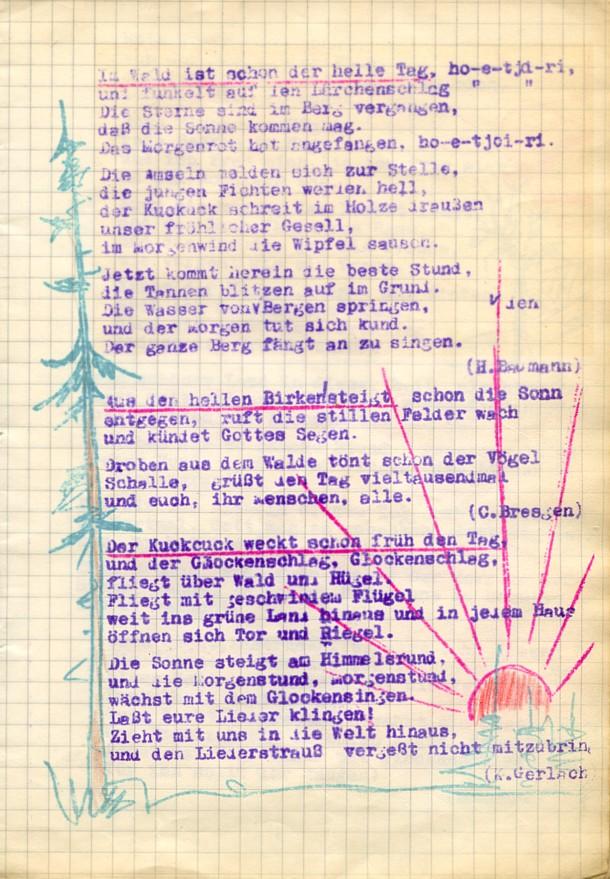 Im Wald ist schon der helle Tag, ho-e-tjoi-ri,
und funkelt auf den Lärchenschlag " "
Die Sterne sind im Berg vergangen,
daß die Sonne kommen mag.
Das Morgenrot hat angefangen, ho-e-tjoi-ri.
Die Amseln melden sich zur Stelle,
die jungen Fichten werden hell,
der Kuckuck schreit im Holze draußen
unser fröhlicher Gesell,
im Morgenwind die Wipfel sausen.
Jetzt kommt herein die beste Stund,
die Tannen blitzen auf im Grund.
Die Wasser von√Bergen springen, √ den
und der Morgen tut sich kund.
Der ganze Berg fängt an zu singen.
(H.Baumann)
Aus den hellen Birken/steigt schon die Sonn
entgegen, ruft die stillen Felder wach
und kündet Gottes Segen.
Droben aus dem Walde tönt schon der Vögel
Schalle, grüßt den Tag vieltausendmal
und euch, ihr Menschen, alle.
(C.Bresgen)
Der Kuckcuck weckt schon früh den Tag,
und der Glockenschlag, Glockenschlag,
fliegt über Wald und Hügel.
Fliegt mit geschwindem Flügel
weit ins grüne Land hinaus und in jedem Haus
öffnen sich Tor und Riegel.
Die Sonne steigt am Himmelsrund,
und die Morgenstund, Morgenstund,
wächst mit dem Glockensingen.
Laßt eure Lieder klingen!
Zieht mit uns in die Welt hinaus,
und den Liederstrauß vergeßt nicht mitzubrin
(K.Gerlach